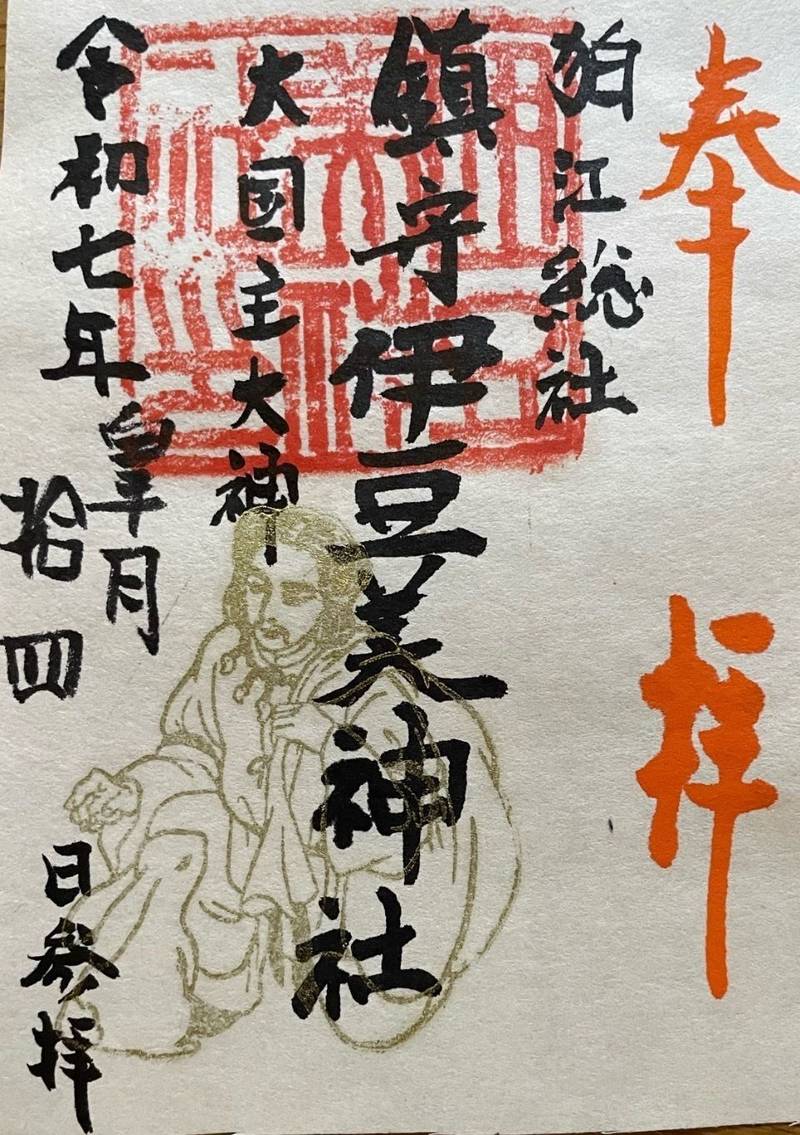 奉拝
狛江総社
鎮守伊豆美神社
大国主大神
令和七年皐月拾四日参拝